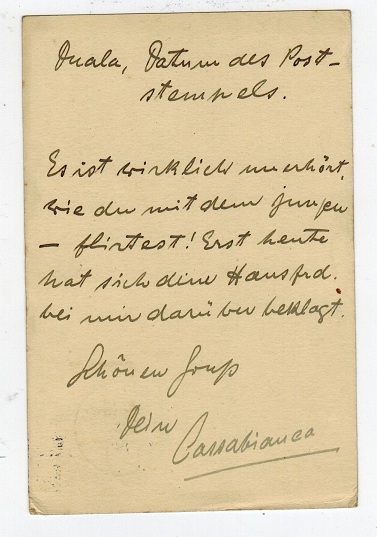 Duala, Datum des Post-
stempels.
Es ist wirklich unerhört,
wie du mit dem jungen
— flirtest! Erst heute
hat sich deine Hausfrd.
bei mir darüber beklagt.
Schönen Gruß
Dein
Cassabianca